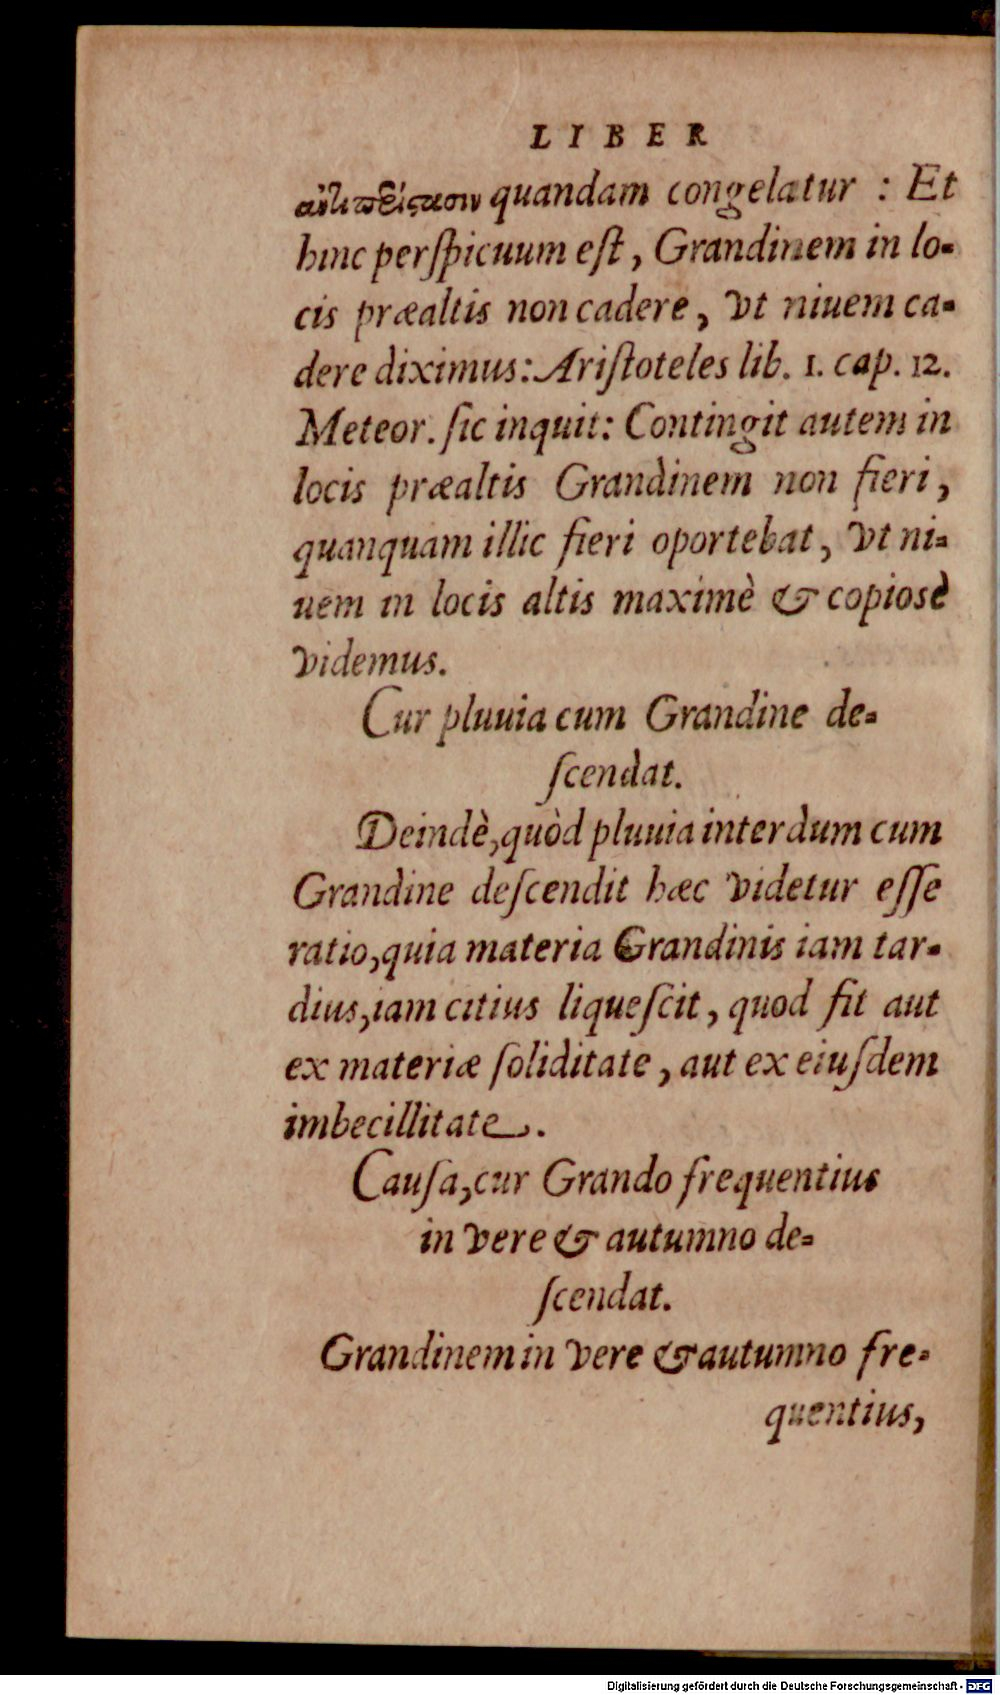 LIBER
ἀντιπερίστασιν quandam congelatur : Et
hinc perſpicuum eſt, Grandinem in lo-
cis præaltis non cadere, vt niuem ca-
dere diximus: Ariſtoteles lib. 1. cap. 12.
Meteor. ſic inquit: Contingit autem in
locis præaltis Grandinem non fieri,
quanquam illic fieri oportebat, vt ni-
uem in locis altis maximè & copiosè
videmus.
Cur pluuia cum Grandine de-
ſcendat.
Deindè, quòd pluuia interdum cum
Grandine deſcendit hæc videtur eſſe
ratio, quia materia Grandinis iam tar-
dius, iam citius liqueſcit, quod fit aut
ex materiæ ſoliditate, aut ex eiuſdem
imbecillitate.
Cauſa, cur Grando frequentius
in vere & autumno de-
ſcendat.
Grandinem in vere & autumno fre-
quentius,
Digitalisierung gefördert durch die Deutsche Forschungsgemeinschaft - DFG